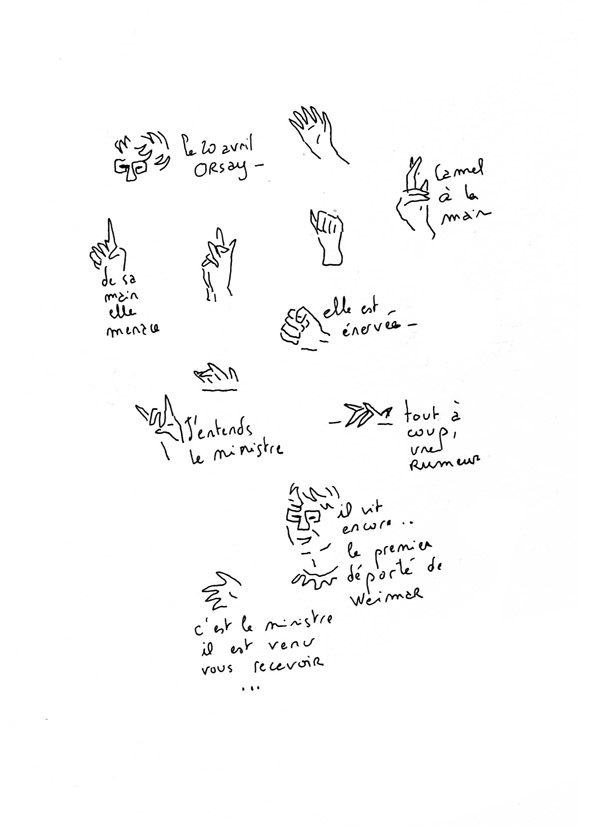 le 20 avril
ORSAY —
Camel
à la
main
de sa
main
elle
menace
elle est
énervée —
J'entends
le ministre
tout à
coup,
une
RUMEUR
il vit
encore..
le premier
déporté de
WEIMAR
c'est le ministre
il est venu
vous recevoir
...